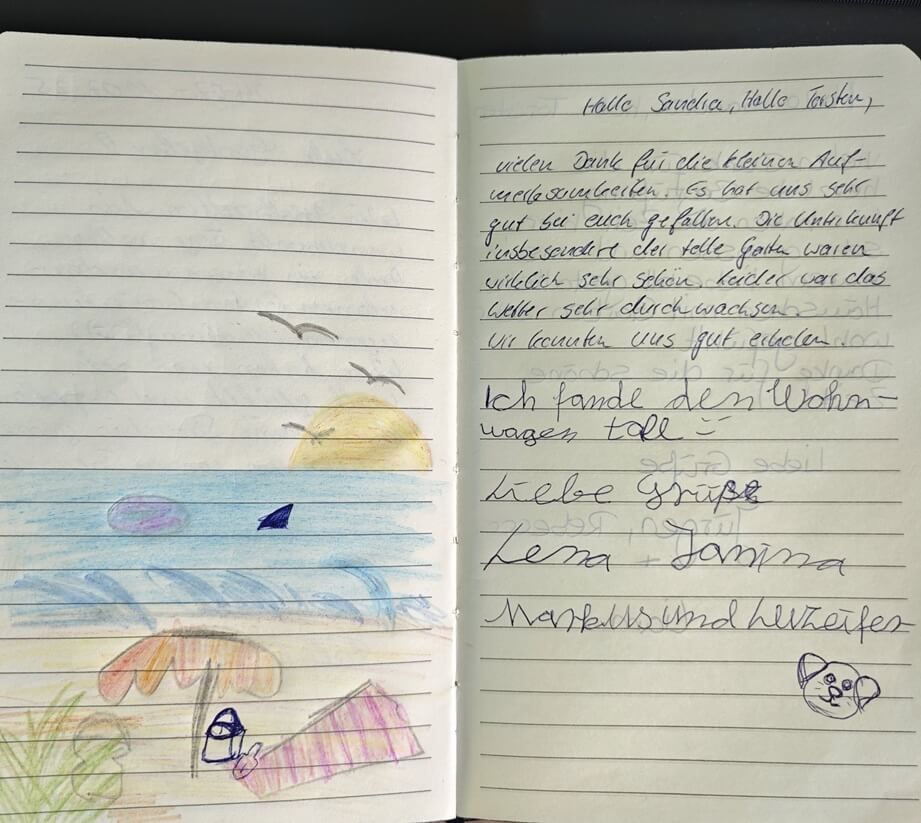 Hallo Sandra, Hallo Torsten,
vielen Dank für die kleinen Auf-
merksamkeiten. Es hat uns sehr
gut bei euch gefallen. Die Unterkunft
insbesondere der tolle Garten waren
wirklich sehr schön. Leider war das
Wetter sehr durchwachsen
Wir konnten uns gut erholen.
Ich fande den Wohn-
wagen toll
Liebe Grüße
Lena + Janina
Markus und Luzeifer